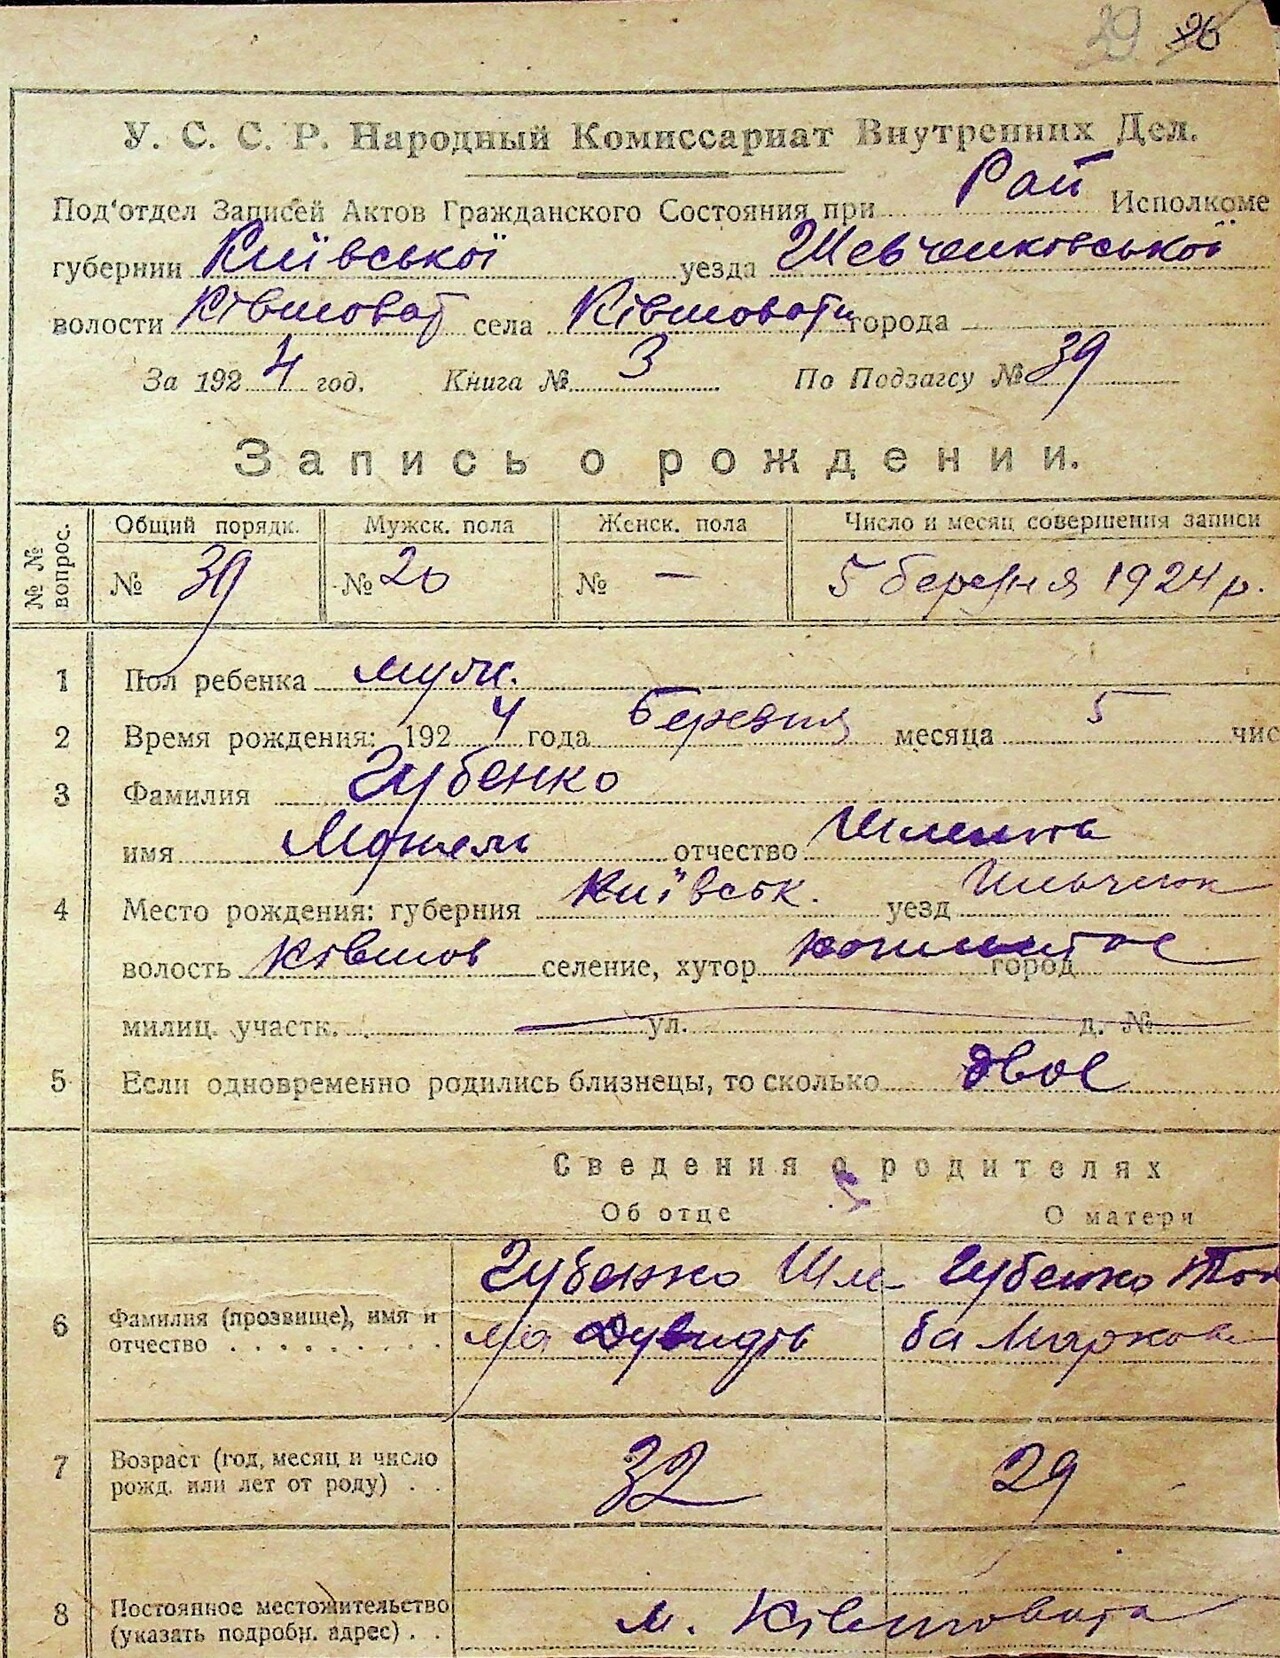 29 26
У. С. С. Р. Народный Комиссариат Внутренних Дел.
Под'отдел Записей Актов Гражданского Состояния при Рай Исполкоме
губернии Київської уезда Шевченковської
волости Ківшоват села Ківшовати города
За 1924 год. Книга № 3 По Подзагсу № 39
Запись о рождении.
№ № вопрос. Общий порядк. Мужск. пола Женск. пола Число и месяц совершения записи
№ 39 № 20 № — 5 березня 1924 р.
1 Пол ребенка муж.
2 Время рождения: 1924 года Березня месяца 5 чис
3 Фамилия Губенко
имя отчество
4 Место рождения: губерния Київськ. уезд
волость Ківшов селение, хутор город
милиц. участк. ул. д. №
5 Если одновременно родились близнецы, то сколько двое
Сведения о родителях
Об отце О матери
6 Фамилия (прозвище), имя и отчество Губенко Шле- Губенко Тов
ма Дувидів ба Маркові
7 Возраст (год, месяц и число рожд. или лет от роду) 32 29
8 Постоянное местожительство (указать подробн. адрес) м. Ківшовата